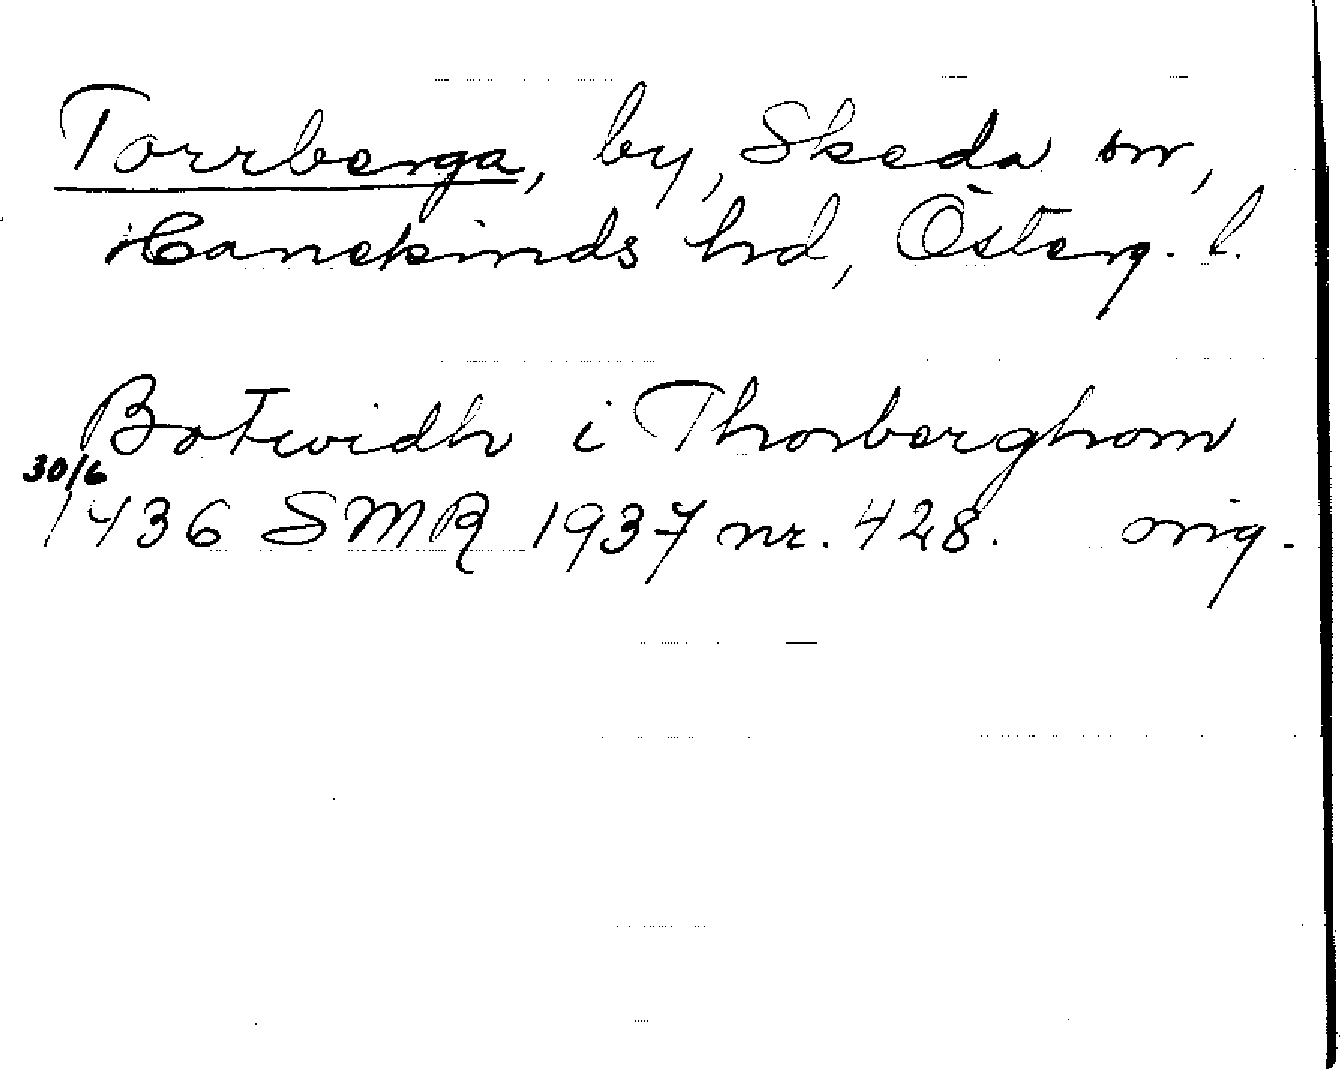 Torrberga, by, Skeda sn,
Hanekinds hd, Österg. l.
Botwidh i Thorberghom
30/6
1436 SMR 1937 nr. 428. orig.